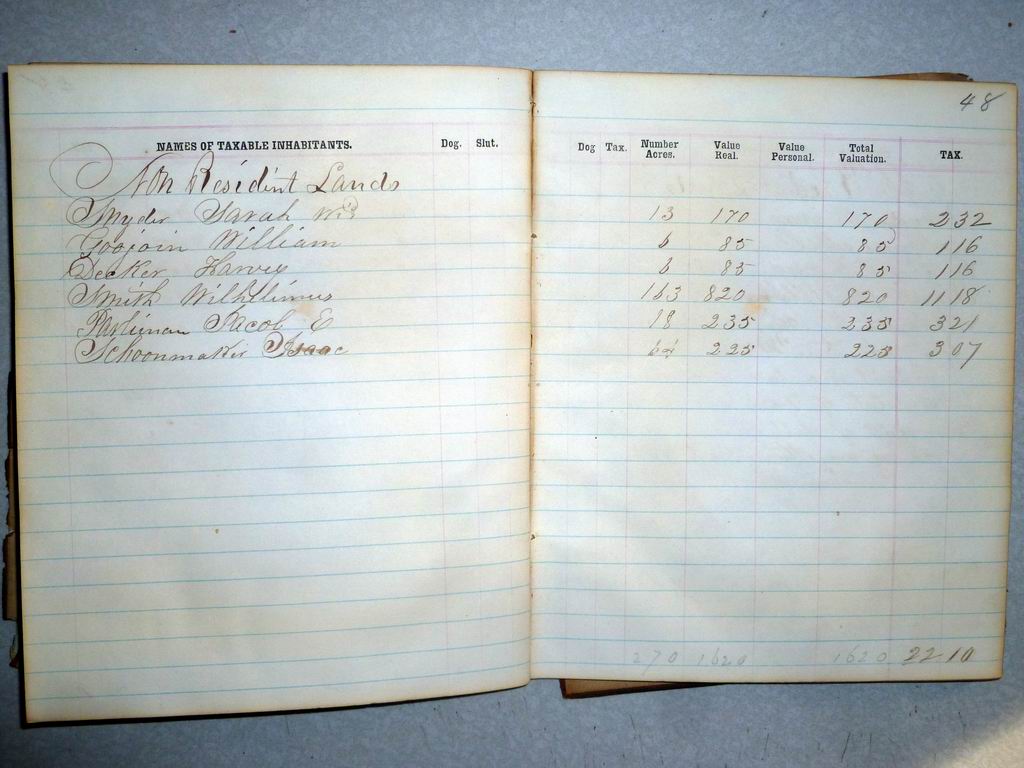 48
NAMES OF TAXABLE INHABITANTS. Dog. Slut. Dog Tax. Number Acres. Value Real. Value Personal. Total Valuation. TAX.
Non Resident Lands
Snyder Sarah Wid 13 170 170 2 32
William 6 85 85 1 16
Decker Harvey 6 85 85 1 16
Smith Wilhelimus 163 820 820 11 18
Jacob E 18 235 235 3 21
Schoonmaker Isaac 64 225 225 3 07
270 1620 1620 22 10